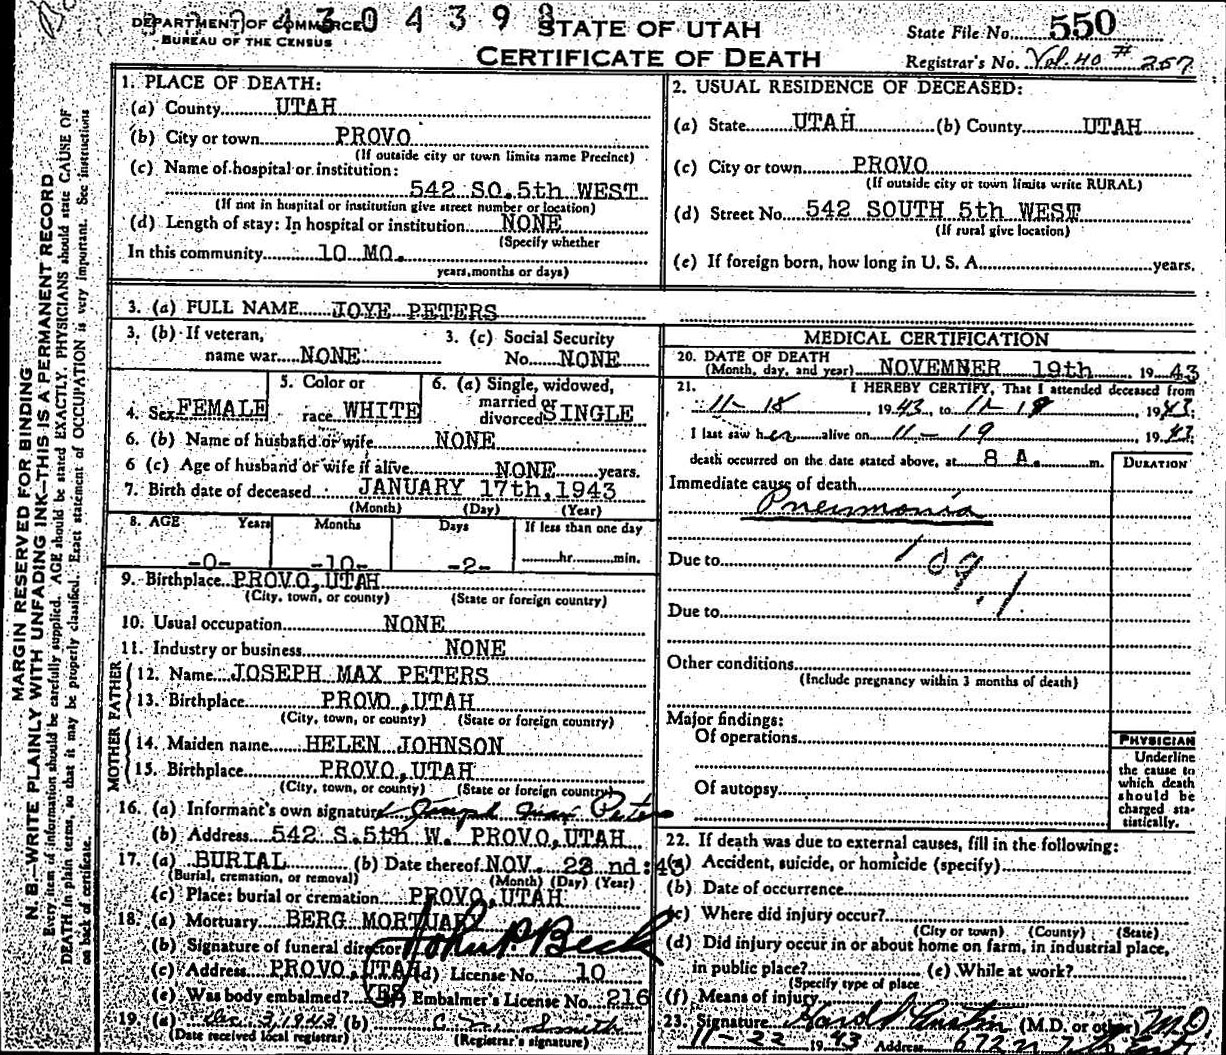 DEPARTMENT OF COMMERCE
BUREAU OF THE CENSUS
304398
STATE OF UTAH
CERTIFICATE OF DEATH
State File No. 550
Registrar's No. Vol. 40 # 257
MARGIN RESERVED FOR BINDING
N. B.—WRITE PLAINLY WITH UNFADING INK—THIS IS A PERMANENT RECORD
Every item of information should be carefully supplied. AGE should be stated EXACTLY. PHYSICIANS should state CAUSE OF
DEATH in plain terms, so that it may be properly classified. Exact statement of OCCUPATION is very important. See instructions
on back of certificate.
1. PLACE OF DEATH:
(a) County UTAH
(b) City or town PROVO
(If outside city or town limits name Precinct)
(c) Name of hospital or institution:
542 SO. 5th WEST
(If not in hospital or institution give street number or location)
(d) Length of stay: In hospital or institution NONE
(Specify whether
In this community 10 MO.
years, months or days)
2. USUAL RESIDENCE OF DECEASED:
(a) State UTAH (b) County UTAH
(c) City or town PROVO
(If outside city or town limits write RURAL)
(d) Street No. 542 SOUTH 5th WEST
(If rural give location)
(e) If foreign born, how long in U. S. A. years.
3. (a) FULL NAME JOYE PETERS
3. (b) If veteran, name war NONE
3. (c) Social Security No. NONE
4. Sex FEMALE
5. Color or race WHITE
6. (a) Single, widowed, married or divorced SINGLE
6. (b) Name of husband or wife NONE
6 (c) Age of husband or wife if alive NONE years.
7. Birth date of deceased JANUARY 17th, 1943
(Month) (Day) (Year)
8. AGE Years Months Days If less than one day
-0- -10- -2- hr. min.
9. Birthplace PROVO, UTAH
(City, town, or county) (State or foreign country)
10. Usual occupation NONE
11. Industry or business NONE
FATHER
12. Name JOSEPH MAX PETERS
13. Birthplace PROVO, UTAH
(City, town, or county) (State or foreign country)
MOTHER
14. Maiden name HELEN JOHNSON
15. Birthplace PROVO, UTAH
(City, town, or county) (State or foreign country)
16. (a) Informant's own signature Joseph Max Peters
(b) Address 542 S. 5th W. PROVO, UTAH
17. (a) BURIAL (b) Date thereof NOV. 22 nd: 43
(Burial, cremation, or removal) (Month) (Day) (Year)
(c) Place: burial or cremation PROVO, UTAH
18. (a) Mortuary BERG MORTUARY
(b) Signature of funeral director John P Beck
(c) Address PROVO, UTAH (d) License No. 10
(e) Was body embalmed? YES (f) Embalmer's License No. 216
19. (a) Dec. 3, 1943 (b) C. N. Smith
(Date received local registrar) (Registrar's signature)
MEDICAL CERTIFICATION
20. DATE OF DEATH
(Month, day, and year) NOVEMNER 19th 19 43
21. I HEREBY CERTIFY, That I attended deceased from
11-18, 1943, to 11-19, 1943.
I last saw her alive on 11-19, 1943.
death occurred on the date stated above, at 8 A. m.
DURATION
Immediate cause of death
Pneumonia
109.1
Due to
Due to
Other conditions
(Include pregnancy within 3 months of death)
Major findings:
Of operations
Of autopsy
PHYSICIAN
Underline
the cause to
which death
should be
charged sta-
tistically.
22. If death was due to external causes, fill in the following:
(a) Accident, suicide, or homicide (specify)
(b) Date of occurrence
(c) Where did injury occur?
(City or town) (County) (State)
(d) Did injury occur in or about home on farm, in industrial place,
in public place? (e) While at work?
(Specify type of place
(f) Means of injury
23. Signature Austin (M.D. or other) M.D.
11-22 1943 Address